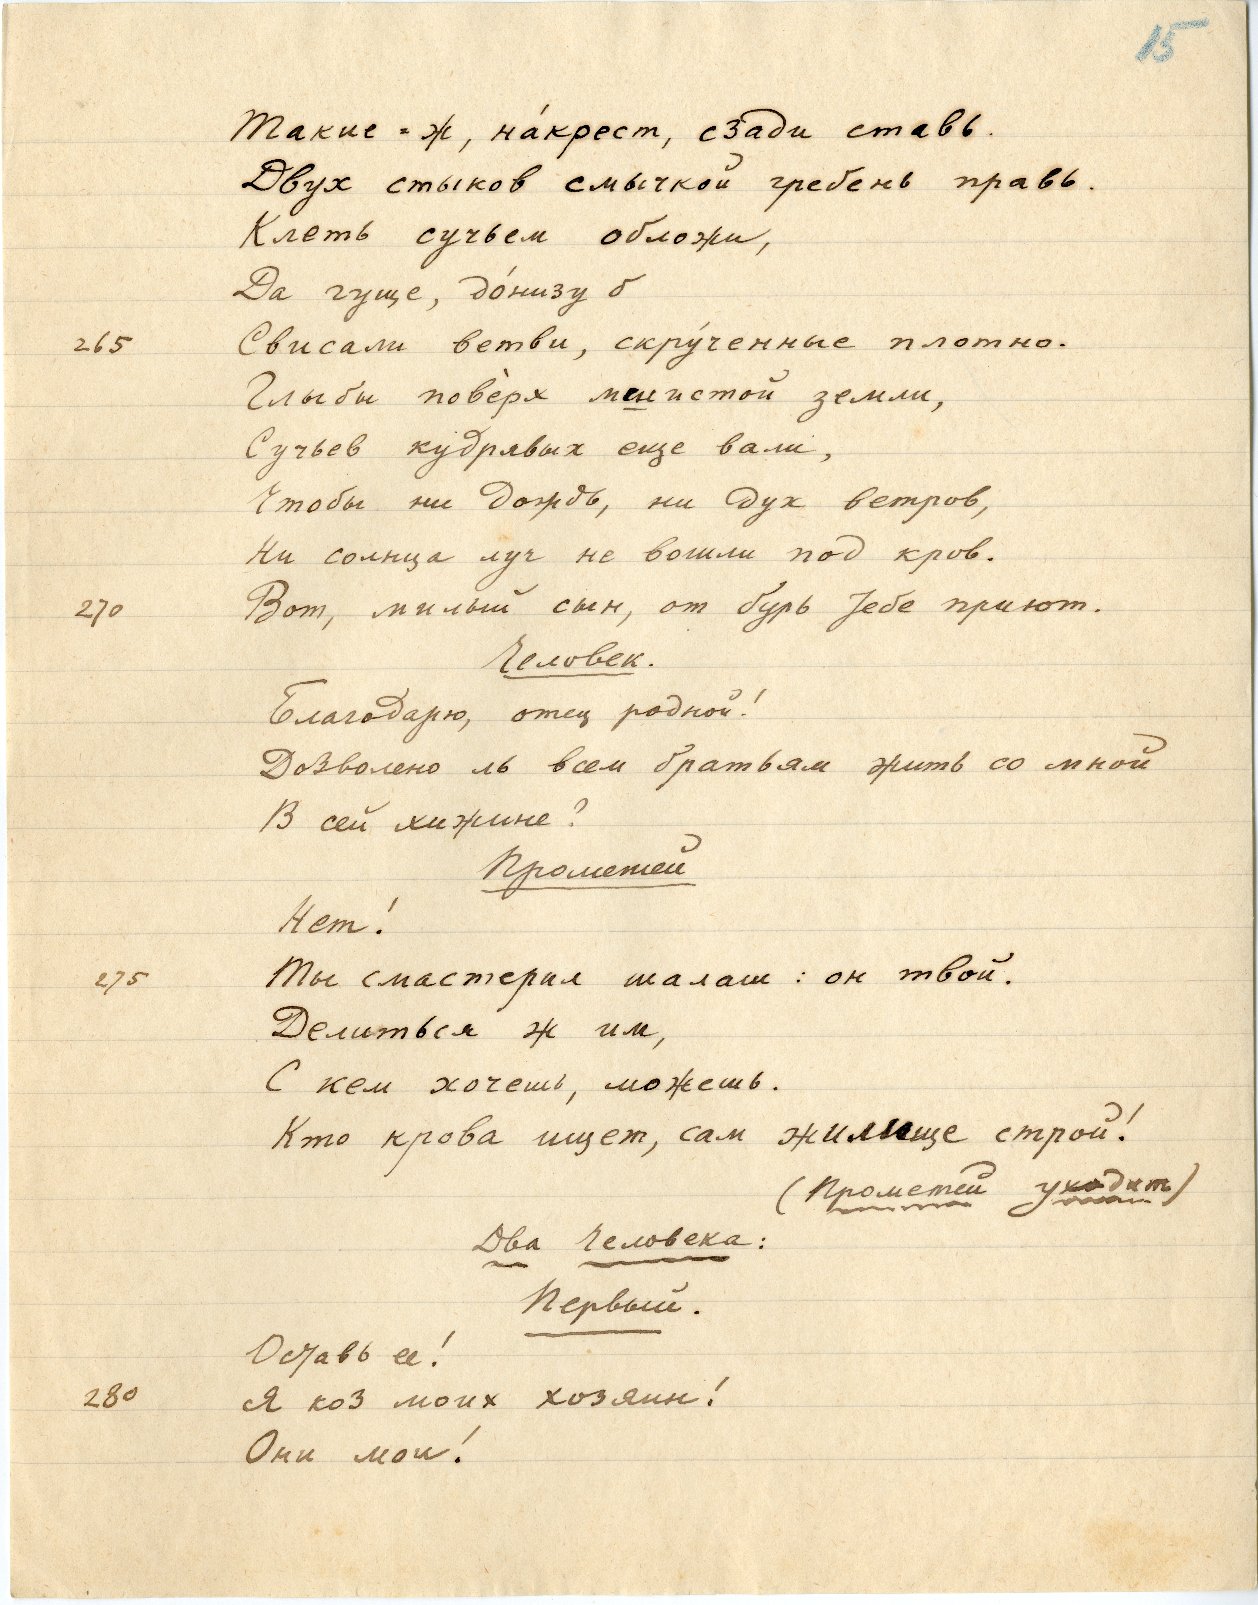 15
Такие-ж, на́крест, сзади ставь.
Двух стыков смычкой гребень правь.
Клеть сучьем обложи,
Да гуще, до́низу б
265 Свисали ветви, скру́ченные плотно.
Глыбы повѐрх мшистой земли,
Сучьев кудрявых еще вали,
Чтобы ни дождь, ни дух ветров,
Ни солнца луч не вошли под кров.
270 Вот, милый сын, от бурь тебе приют.
Человек.
Благодарю, отец родной!
Дозволено ль всем братьям жить со мной
В сей хижине?
Прометей
Нет!
275 Ты смастерил шалаш: он твой.
Делиться ж им,
С кем хочешь, можешь.
Кто крова ищет, сам жилище строй!
(Прометей уходит)
Два Человека:
Первый.
Оставь ее!
280 Я коз моих хозяин!
Они мои!